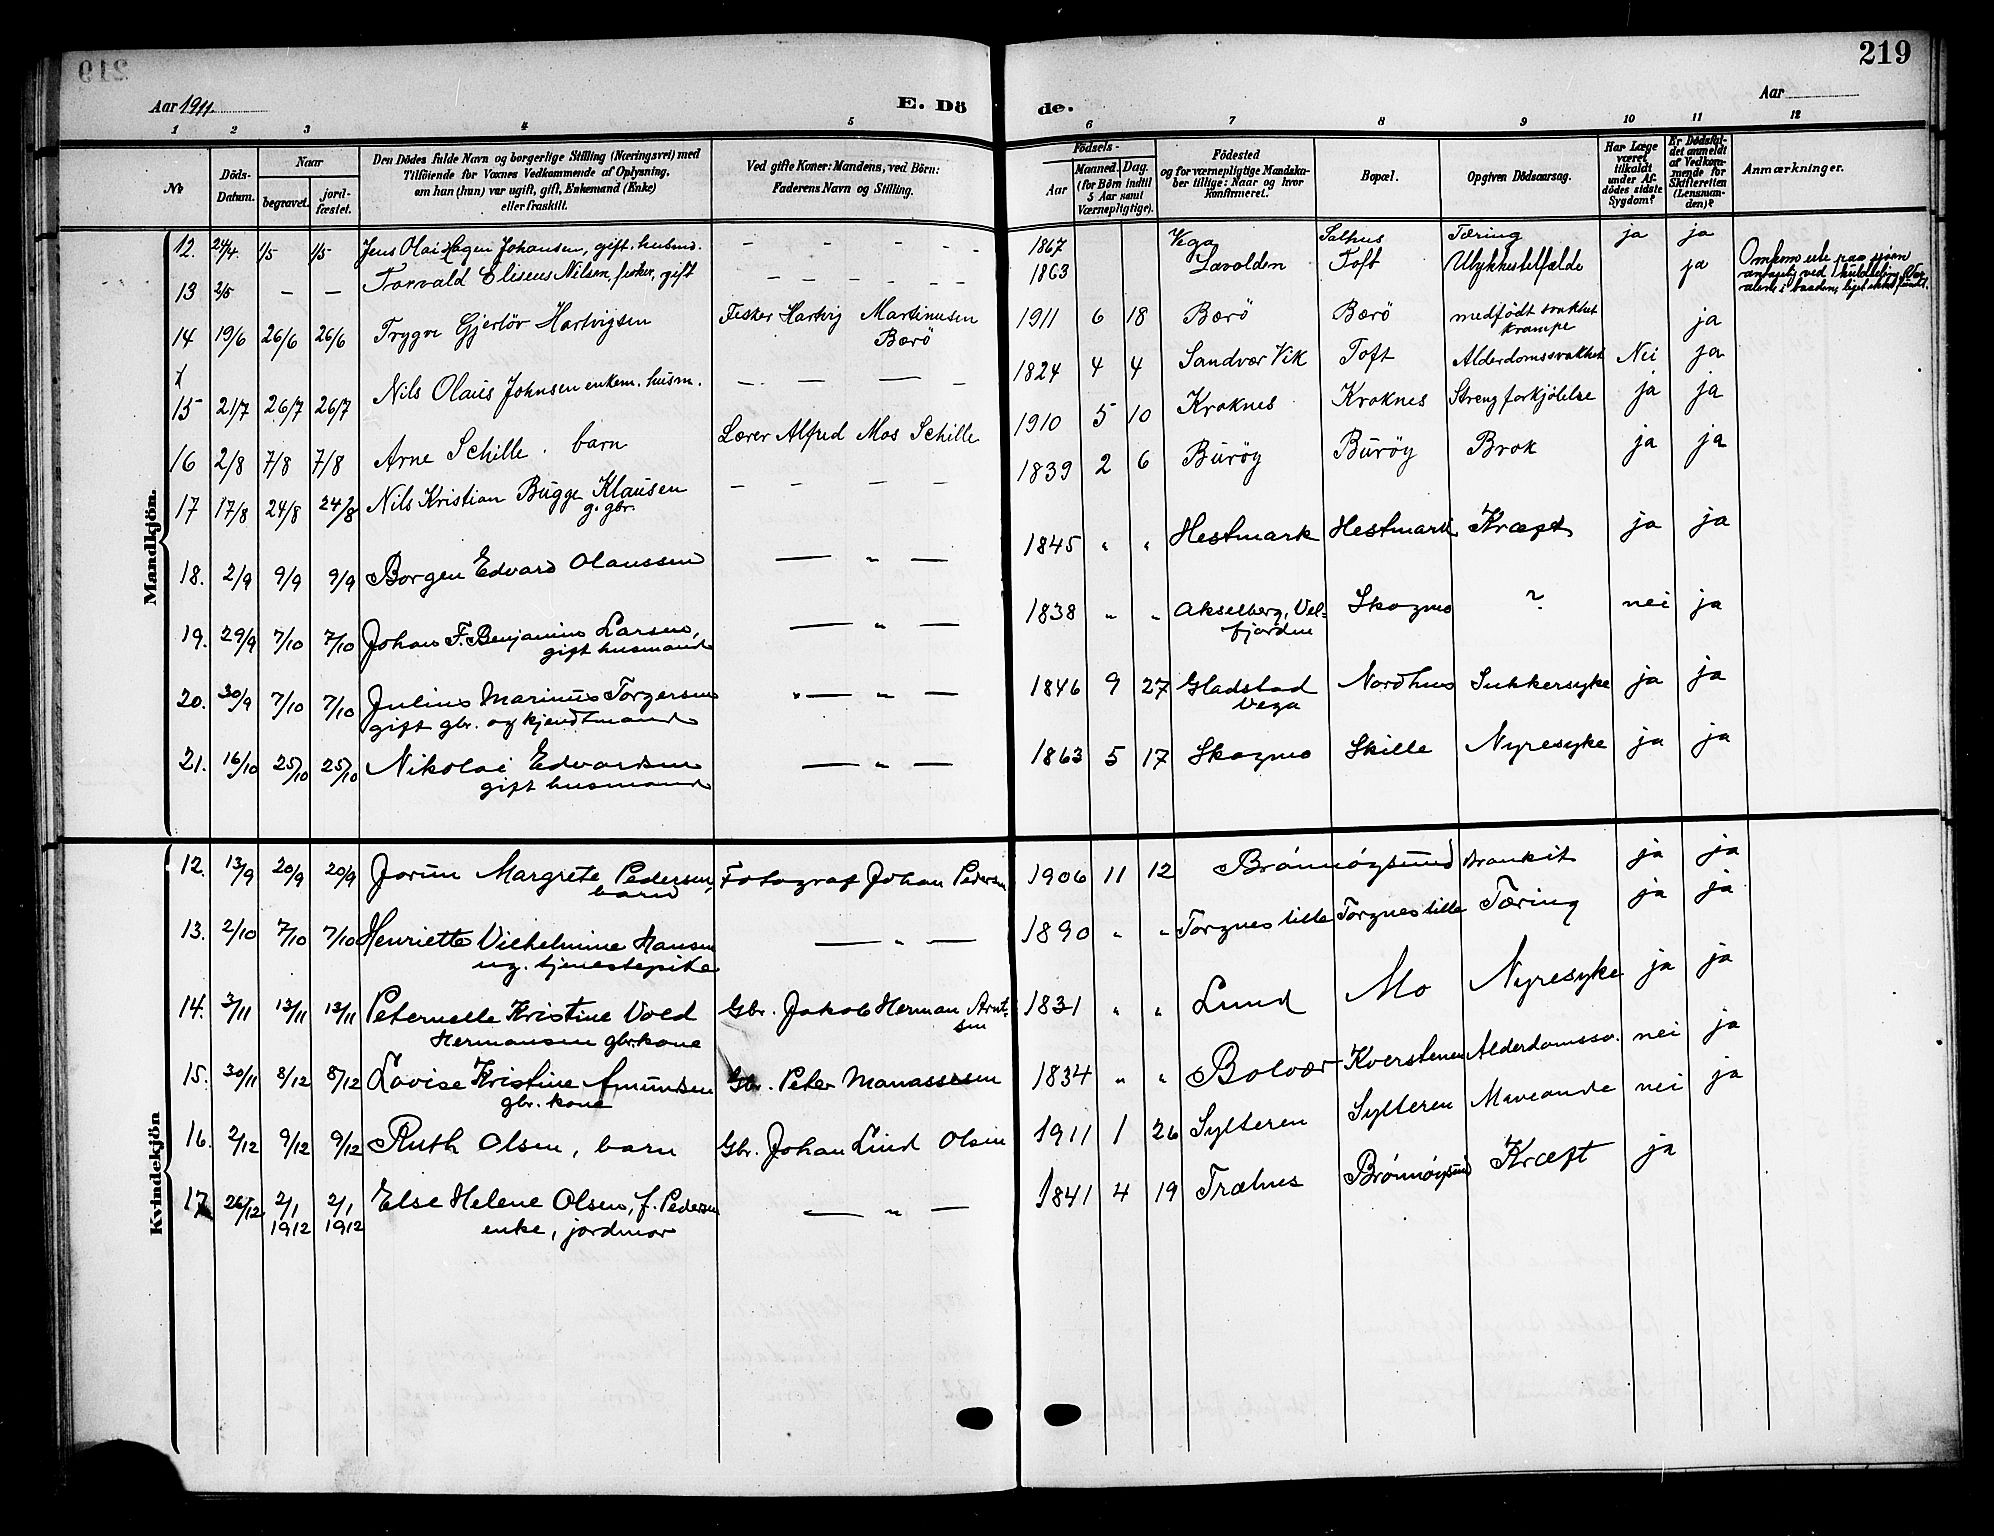 219
Aar 1911.
E. Dö de.
Aar
1 2 3 4 5 6 7 8 9 10 11 12
No
Döds-Datum.
Naar
begravet.
jord-fæstet.
Den Dödes fulde Navn og borgerlige Stilling (Næringsvei) med
Tilföiende for Voxnes Vedkommende af Oplysning,
om han (hun) var ugift, gift, Enkemand (Enke)
eller fraskilt.
Ved gifte Koner: Mandens, ved Börn:
Faderens Navn og Stilling.
Födsels-
Aar
Maaned. Dag.
(for Börn indtil
5 Aar samt
Værnepligtige).
Födested
og for værnepligtige Mandska-
ber tillige: Naar og hvor
konfirmeret.
Bopæl.
Opgiven Dödsaarsag.
Har Læge
været
tilkaldt
under Af-
dödes sidste
Sygdom?
Er Dödsfal-
det anmeldt
af Vedkom-
mende for
Skifteretten
(Lensman-
den)?
Anmærkninger.
Mandkjön.
12. 24/4. 1/5 – 1/5 Jens Olai Hagen Johansen, gift. husmd. – – – – – 1867 Vega Salhus Tæring ja ja
13 2/5 – – Torvald Eliseus Nilsen, fisker, gift – – – – – 1863 Lavolden Toft Ulykkestilfælde ja Omkom ute paa sjøen
antagelig ved
alene i baaden; liget ikke fundet.
14 19/6 26/6 26/6 Trygve Gjerløv Hartvigsen Fisker Hartvig Martinusen
Bærö
1911 6 18 Bærö Bærö medfödt svakhet
krampe
ja
15 21/7 26/7 26/7 Nils Olaus Johnsen enkem. husm. – – – – 1824 4 4 Sandvær Vik Toft Alderdomssvakhet Nei ja
16 2/8 7/8 7/8 Arne Schille. barn Lærer Alfred Mos Schille 1910 5 10 Kroknes Kroknes Streng forkjölelse ja ja
17 17/8 24/8 24/8 Nils Kristian Bugge Klausen
g. gbr.
– – – – 1839 2 6 Buröy Buröy Brok ja ja
18. 2/9 9/9 9/9 Borgen Edvard Olaussen — „ — 1845 „ „ Hestmark Hestmark Kræft ja ja
19. 29/9 7/10 7/10 Johan F. Benjamin Larsen,
gift husmand
— „ — 1838 „ „ Akselberg, Vel-
fjorden
Skogmo ? nei ja
20. 30/9 7/10 7/10 Julius Marinus Torgersen
gift gbr. og kjendtmand
„— „ — 1846 9 27 Gladstad
Vega
Nordhus Sukkersyke ja ja
21. 16/10 25/10 25/10 Nikolai Edvardsen
gift husmand
— „ — 1863 5 17 Skogmo Skille Nyresyke ja ja
Kvindekjön
12. 13/9 20/9 20/9 Jorun Margrete Pedersen,
barn
Fotograf Johan Pedersen 1906 11 12 Brönnöysund Bronkit ja ja
13. 2/10 7/10 7/10 Henriette Vilhelmine Hansen
ug. tjenestepike
— „ — 1890 „ „ Torgnes lille Torgnes lille Tæring ja ja
14. 3/11 13/11 13/11 Peternelle Kristine Vold
Hermansen gbr.kone
Gbr. Jakob Herman Arnt-
sen
1831 „ „ Lund Mo Nyresyke ja ja
15. 30/11 8/12 8/12 Lovise Kristine Amundsen
gbr. kone
Gbr. Peter Manassesen 1834 „ „ Bolvær Kverstenen Alderdomssv. nei ja
16. 2/12 9/12 9/12 Ruth Olsen, barn Gbr. Johan Lund Olsen 1911 1 26 Sylteren Sylteren Maveonde nei ja
17 26/12 2/1
1912
2/1
1912
Else Helene Olsen, f. Pedersen
enke, jordmor
— „ — 1841 4 19 Trælnes Brönnöysund Kræft ja